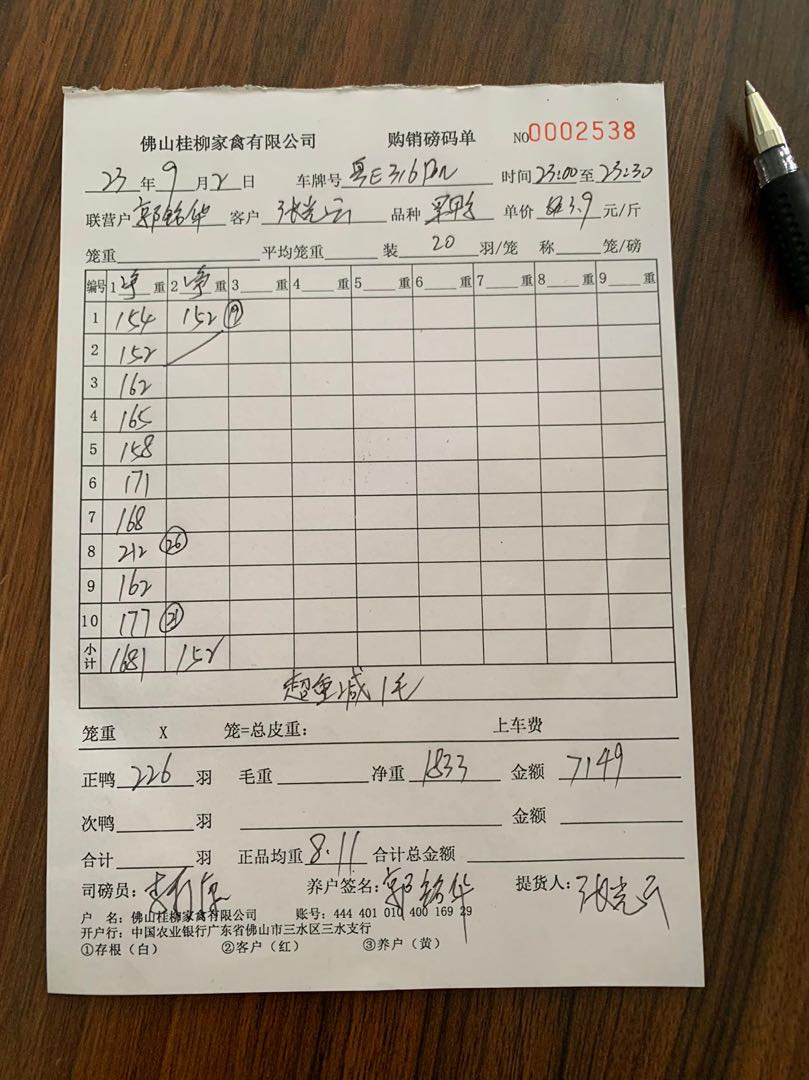 佛山桂柳家禽有限公司 购销磅码单 NO0002538
23年9月2日 车牌号粤E316 时间23:00至23:30
联营户郭铭华 客户张光云 品种 单价3.9元/斤
笼重 平均笼重 装20羽/笼 称 笼/磅
编号 1净重 2净重 3 重 4 重 5 重 6 重 7 重 8 重 9 重
1 154 152 ⑲
2 152
3 162
4 165
5 158
6 171
7 168
8 212 ㉖
9 162
10 177 ㉑
小计 1681 152
超重减1毛
笼重 X 笼=总皮重: 上车费
正鸭226羽 毛重 净重1833 金额7149
次鸭 羽 金额
合计 羽 正品均重8.11 合计总金额
司磅员: 养户签名:郭铭华 提货人:张光云
户 名:佛山桂柳家禽有限公司 账号:444 401 010 400 169 29
开户行:中国农业银行广东省佛山市三水区三水支行
①存根(白) ②客户(红) ③养户(黄)